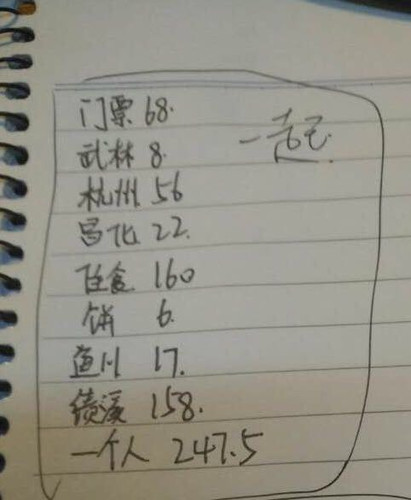 门票 68.
一起
武林 8.
杭州 56
昌化 22.
住食 160
饼 6.
17.
绩溪 158.
一个人 247.5